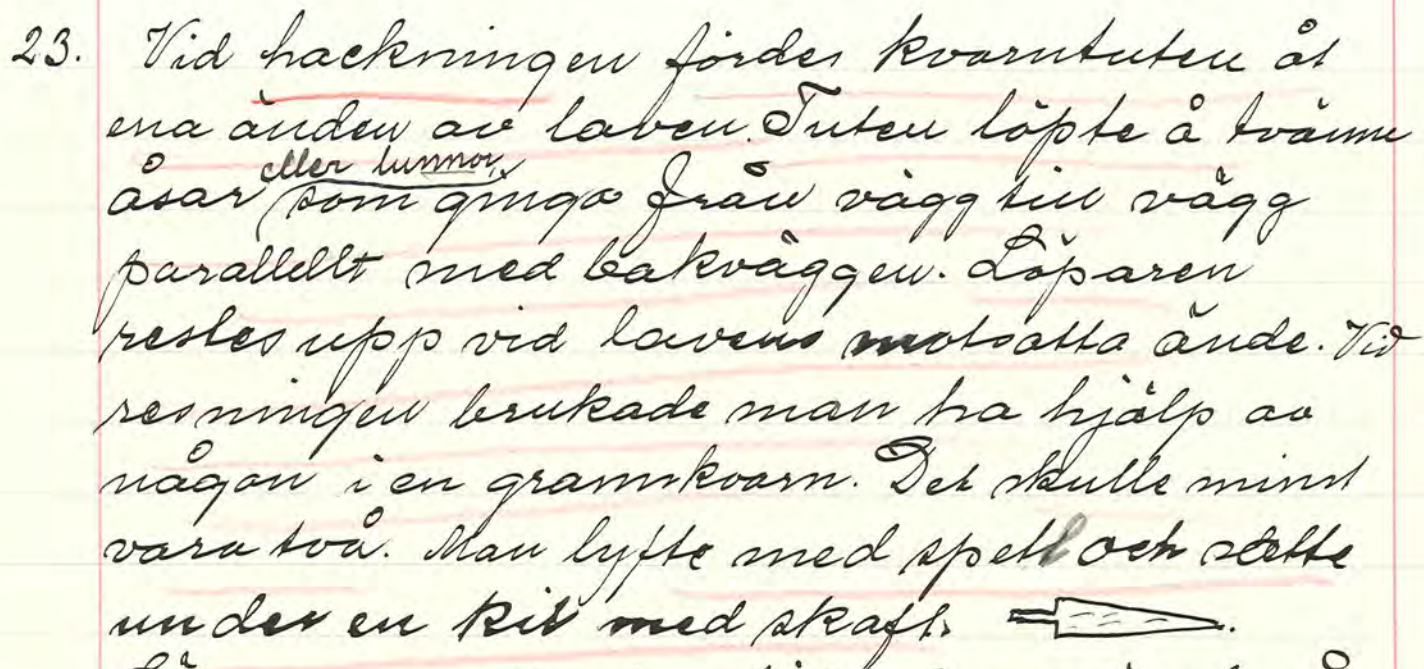 23. Vid hackningen fördes kvarntuten åt
ena änden av laven. Tuten löpte å tvänne
eller lunnor,
åsar som gingo från vägg till vägg
parallellt med bakväggen. Löparen
restes upp vid lavens motsatta ände. Vid
resningen brukade man ha hjälp av
någon i en grannkvarn. Det skulle minst
vara två. Man lyfte med spett och satte
under en kil med skaft.